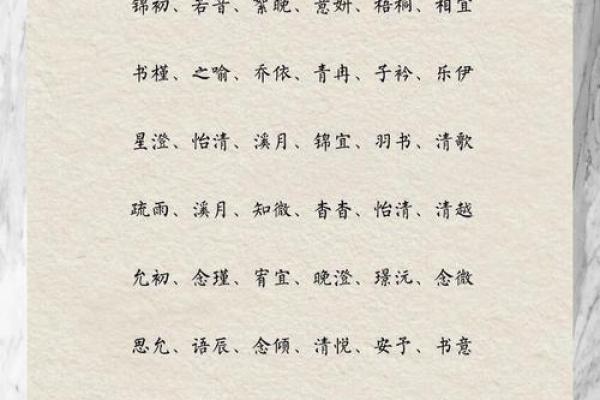 锦初、若音、絮晚、意妍、梧桐、相宜
书槿、之喻、乔依、青冉、子衿、乐伊
星澄、怡清、溪月、锦宜、羽书、清歌
疏雨、溪月、知微、杳杳、怡清、清越
允初、念瑾、宥宜、晚澄、璟沅、念微
思允、语辰、念倾、清悦、安予、书意